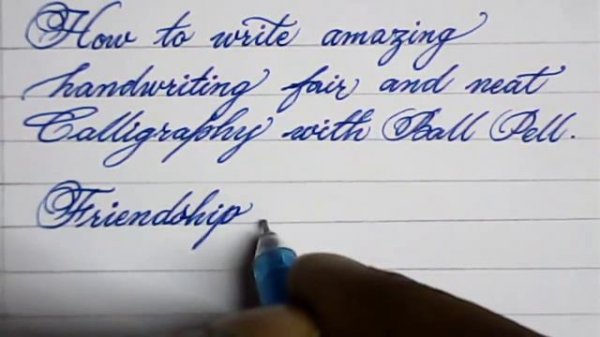 How to write amazing
handwriting fair and neat
Calligraphy with Ball Pell.
Friendship